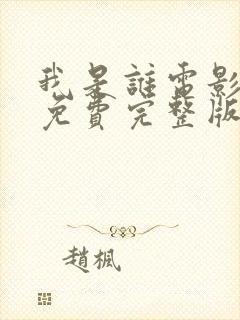 我是誰電影
免費完整版
趙楓